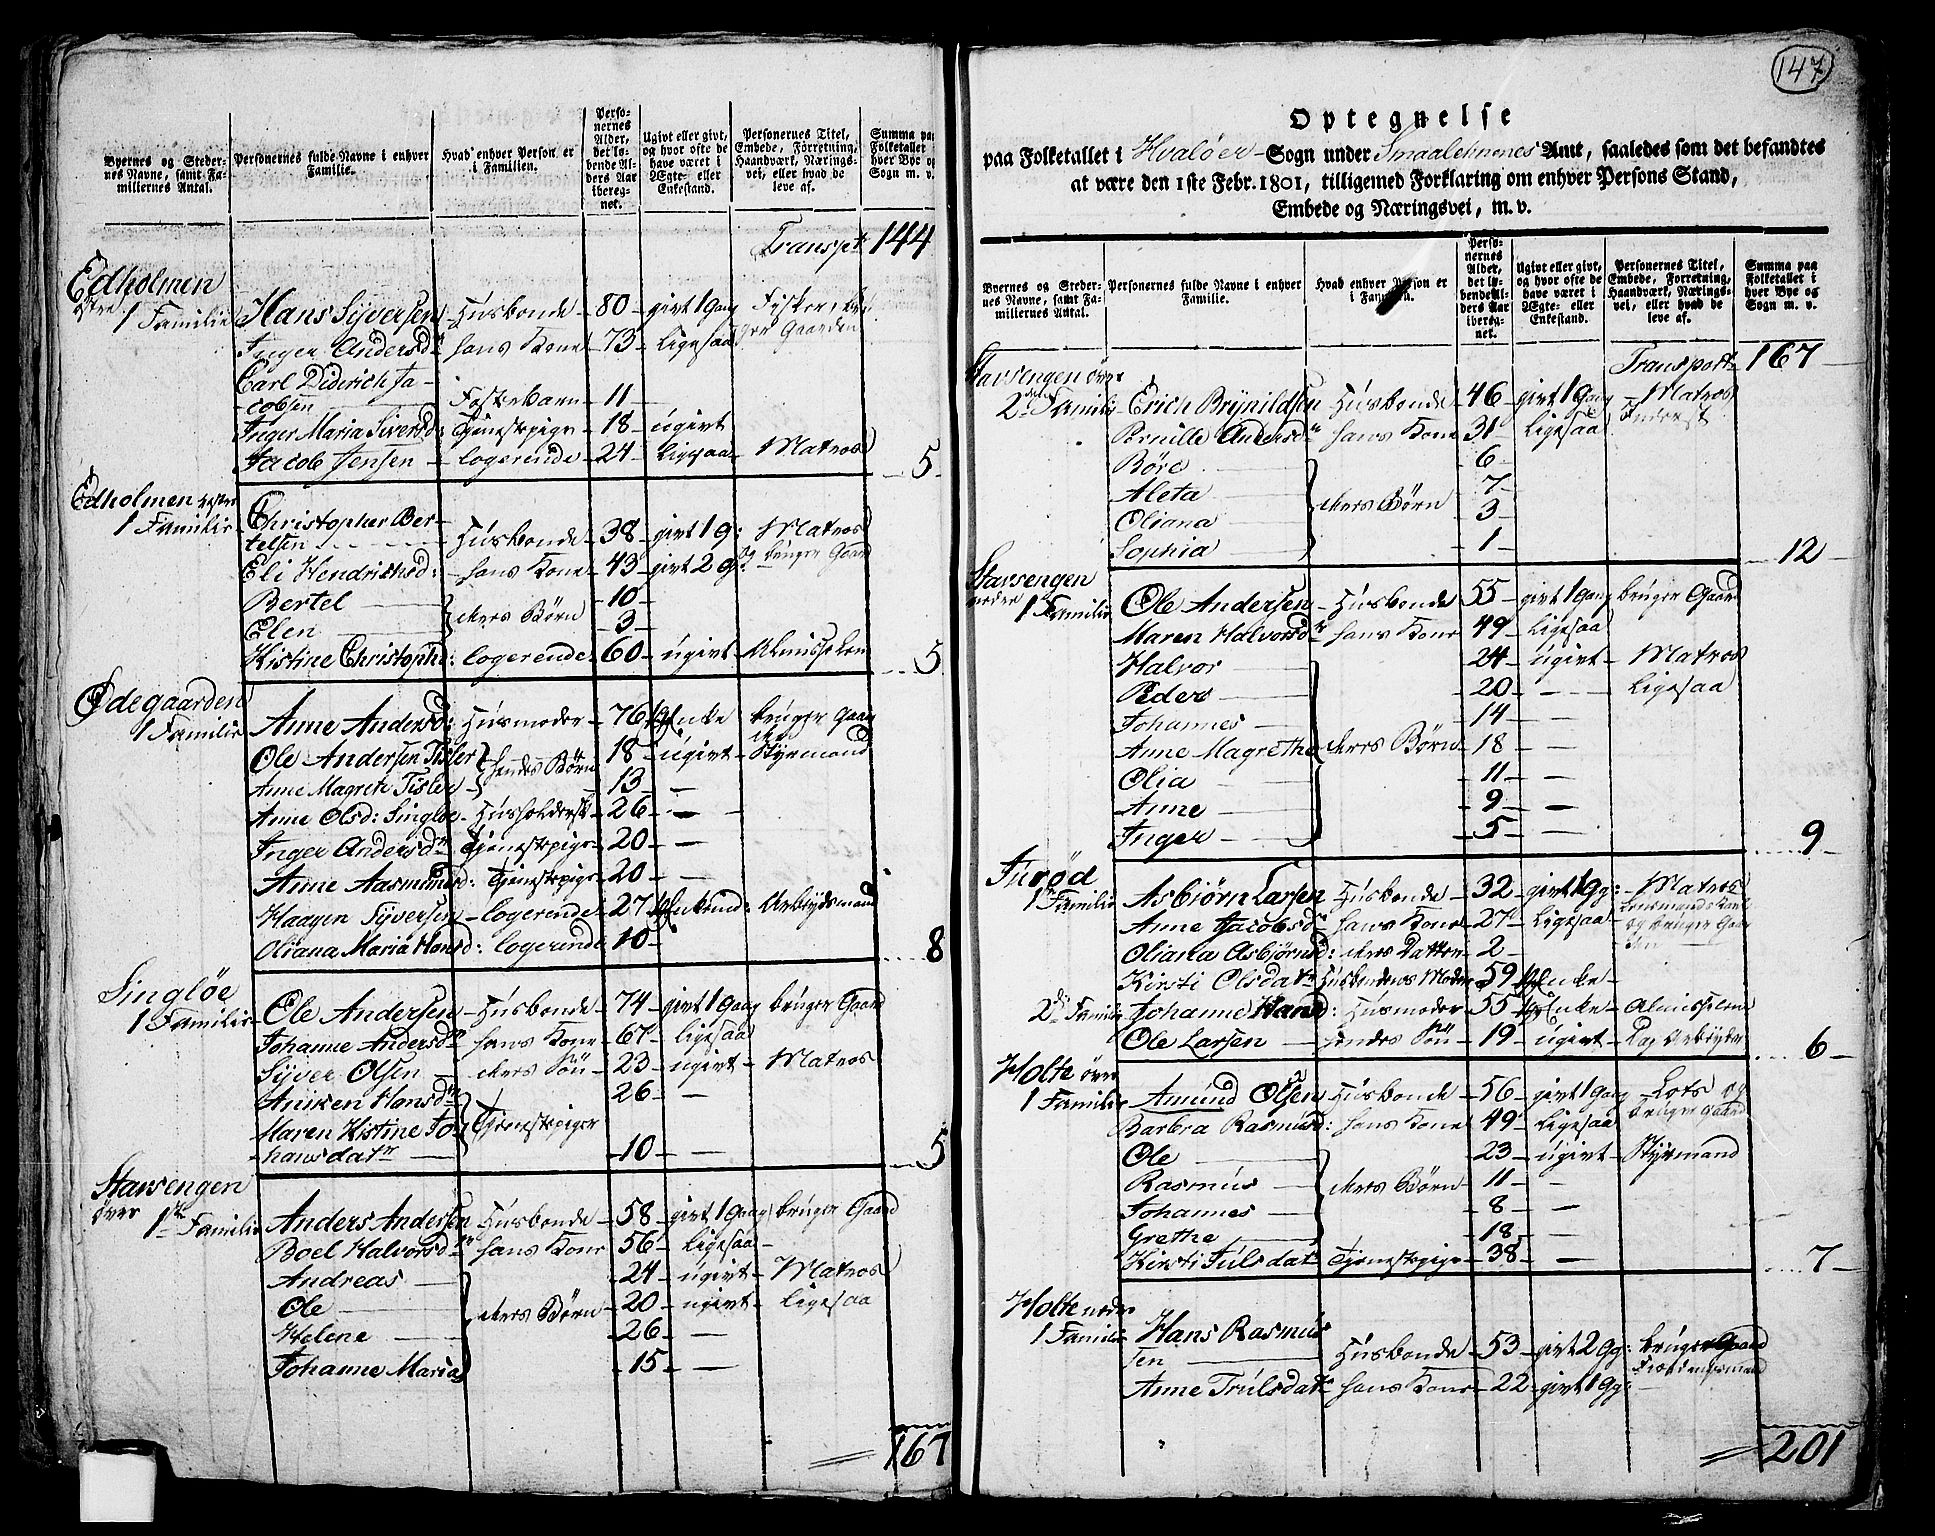 Byernes og Steder-
nes Navne, samt Fa-
miliernes Antal.
Personernes fulde Navne i enhver
Familie.
Hvad enhver Person er
i Familien.
Perso-
nernes
Alder,
det lø-
bende Al-
ders Aar
iberegnet.
Ugivt eller givt,
og hvor ofte de
have været i
Ægte- eller
Enkestand.
Personernes Titel,
Embede, Forretning,
Haandværk, Nærings-
vei, eller hvad de
leve af.
Summa paa
Folketallet i
hver Bye og
Sogn m. v.
Transpt 144
Edholmen
østre
1 Familie Hans Syversen Huusbonde 80 givt 1 Gang Fisker, bru
Inger Andersdr hans Kone 73 ligesaa ger Gaarden
Carl Diderich Ja-
cobsen Fosterbarn 11
Inger Maria Siversd: Tjenestpige 18 ugivt
Jacob Jensen logerende 24 ligesaa Matros 5
Edholmen vestre
1 Familie Christopher Ber-
telsen Huusbonde 38 givt 1 g: Matros
Eli Hendrichsd: hans Kone 43 givt 2 g: og bruger Gaard
Bertel 10
Elen deres Børn 3
Kistine Christoph: logerende 60 ugivt Almisselem 5
Ødegaarden
1 Familie Anne Andersd: Huusmoder 76 Enke bruger Gaar
den
Ole Andersen Tisler 18 ugivt Styrmand
hendes Børn
Anne Magrete Tisler 13 —
Anne Olsd: Singløe Huusholdersk 26 —
Inger Andersdr Tjenestpige 20 —
Anne Aasmundsd: Tjenestpige 20 —
Haagen Syversen logerende 27 Enkemd: Arbeydsmand
Oliana Maria Hansd: logerende 10 8
Singløe
1 Familie Ole Andersen Huusbonde 74 givt 1 Gang bruger Gaard
Johanne Andersdr hans Kone 67 ligesaa
Syver Olsen deres Søn 23 ugivt Matros
Aniken Hansdtr 26 —
Maren Kistine Jo- Tjenestpiger
hansdatr 10 — 5
Starsengen
över 1te Familie Anders Andersen Huusbonde 58 givt 1 Gang bruger Gaard
Boel Halvorsdr hans Kone 56 ligesaa
Andreas 24 ugivt Matros
Ole deres Børn 20 ugivt ligesaa
Helene 26 —
Johanne Maria 15 —
167
147
Optegnelse
paa Folketallet i Hvaløer Sogn under Smaalehnenes Amt, saaledes som det befandtes
at være den 1ste Febr. 1801, tilligemed Forklaring om enhver Persons Stand,
Embede og Næringsvei, m. v.
Byernes og Steder-
nes Navne, samt Fa-
miliernes Antal.
Personernes fulde Navne i enhver
Familie.
Hvad enhver Person er
i Familien.
Perso-
nernes
Alder,
det lø-
bende Al-
ders Aar
iberegnet.
Ugivt eller givt,
og hvor ofte de
have været i
Ægte- eller
Enkestand.
Personernes Titel,
Embede, Forretning,
Haandværk, Nærings-
vei, eller hvad de
leve af.
Summa paa
Folketallet i
hver Bye og
Sogn m. v.
Transport 167
Starsengen över
2den Famili Erich Brynildsen Huusbonde 46 givt 1 Gang Matros
Pernille Andersdr hans Kone 31 ligesaa Inderst
Børe 6
Aleta 7
Oliana deres Børn 3
Sophia 1 12
Starsengen
nedre 1 Familie Ole Andersen Huusbonde 55 givt 1 Gang bruger Gaard
Maren Halvorsdr hans Kone 49 ligesaa
Halvor 24 ugivt Matros
Peder 20 — ligesaa
Johannes 14 —
Anne Magrethe deres Børn 18 —
Olia 11 —
Anne 9 —
Inger 5 — 9
Furød
1 Familie Asbiørn Larsen Huusbonde 32 givt 1 Gg: Matros
Anne Jacobsdr hans Kone 27 ligesaa
og bruger Gaar
den
Oliana Asbiørnsd: deres Datter 2
Kirsti Olsdatr Huusbondens Moder 59 Enke
2den Famili Johanne Hansd: Huusmoder 55 Enke Almisselem
Ole Larsen hendes Søn 19 ugivt Dag Arbeyder 6
Holte över
1 Familie Amund Olsen Huusbonde 56 givt 1 Gang Lots og
Barbra Rasmusd: hans Kone 49 ligesaa bruger Gaard
Ole 23 ugivt Styrmand
Rasmus deres Børn 11 —
Johannes 8 —
Grethe 18 —
Kirsti Trulsdatr Tjenestpige 38 — 7
Holte neder
1 Familie Hans Rasmus
sen Huusbonde 53 givt 2 Gg: bruger Gaard
Anne Trulsdatr hans Kone 22 givt 1 Gg:
201